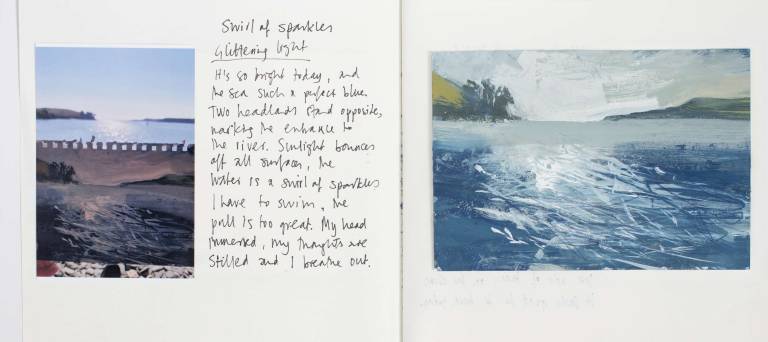 Swirl of sparkles
Glittering light
It's so bright today, and
the sea such a perfect blue.
Two headlands stand opposite,
marking the entrance to
the river. Sunlight bounces
off all surfaces, the
water is a swirl of sparkles
I have to swim, the
pull is too great. My head
immersed, my thoughts are
stilled and I breathe out.